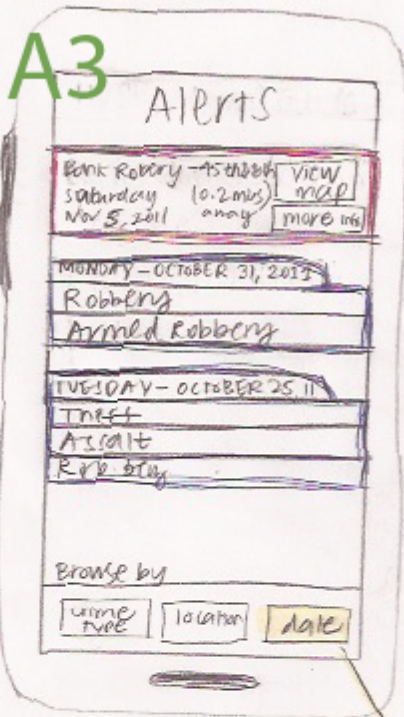 A3
Alerts
Bank Robery - 45th&8th
Saturday (0.2 miles)
Nov 5, 2011 away
view
map
more info
MONDAY - OCTOBER 31, 2011
Robbery
Armed Robbery
TUESDAY - OCTOBER 25, 11
Theft
Assalt
Browse by
crime
type
location
date